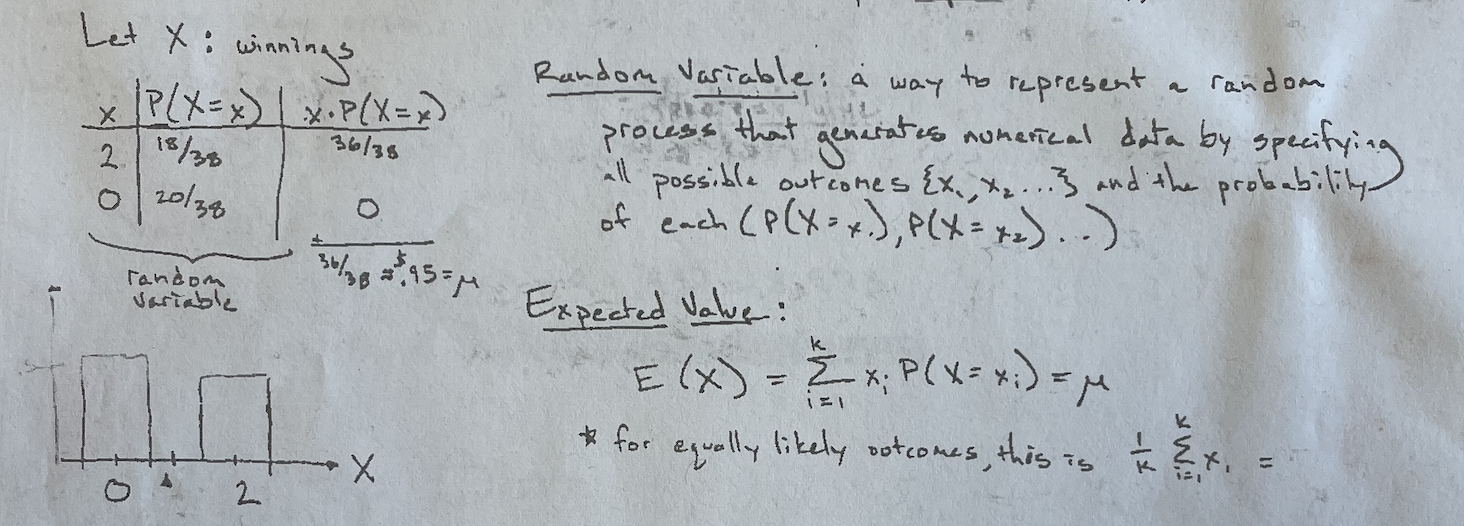 Let X: winnings
x | P(X=x) | x·P(X=x)
2 | 18/38 | 36/38
0 | 20/38 | 0
+
36/38 ≈ $.95 = μ
random
variable
0 2 X
Random Variable: a way to represent a random
process that generates numerical data by specifying
all possible outcomes {x₁, x₂ ...} and the probability
of each (P(X=x₁), P(X=x₂)...)
Expected Value:
E(X) = ∑_{i=1}^{k} xᵢ P(X=xᵢ) = μ
* for equally likely outcomes, this is 1/k ∑_{i=1}^{k} xᵢ =